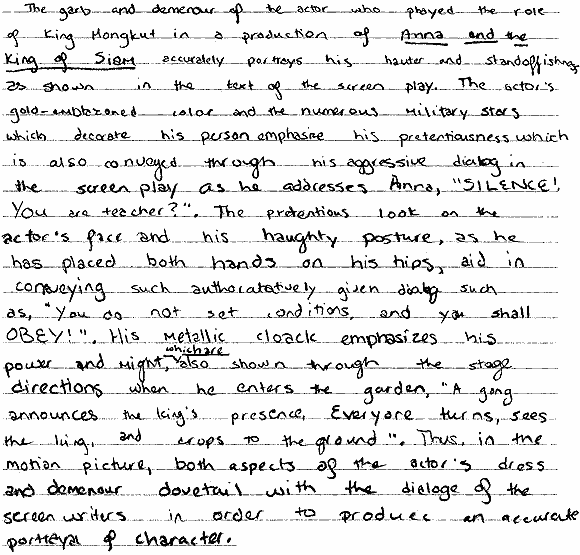 The garb and demenour of the actor who played the role
of King Mongkut in a production of Anna and the
King of Siam accurately portrays his hauter and standoffishness
as shown in the text of the screen play. The actor's
gold-emblazoned color and the numerous military stars
which decorate his person emphasize his pretentiousness which
is also conveyed through his aggressive dialog in
the screen play as he addresses Anna, "SILENCE!
You are teacher?". The pretentious look on the
actor's face and his haughty posture, as he
has placed both hands on his hips, aid in
conveying such authoratatively given dialog such
as, "You do not set conditions, and you shall
OBEY!". His metallic cloack emphasizes his
power and might, which are also shown through the stage
directions when he enters the garden, "A gong
announces the king's presence, Everyone turns, sees
the king, and drops to the ground". Thus, in the
motion picture, both aspects of the actor's dress
and demenour dovetail with the dialoge of the
screen writers in order to produce an accurate
portrayal of character.